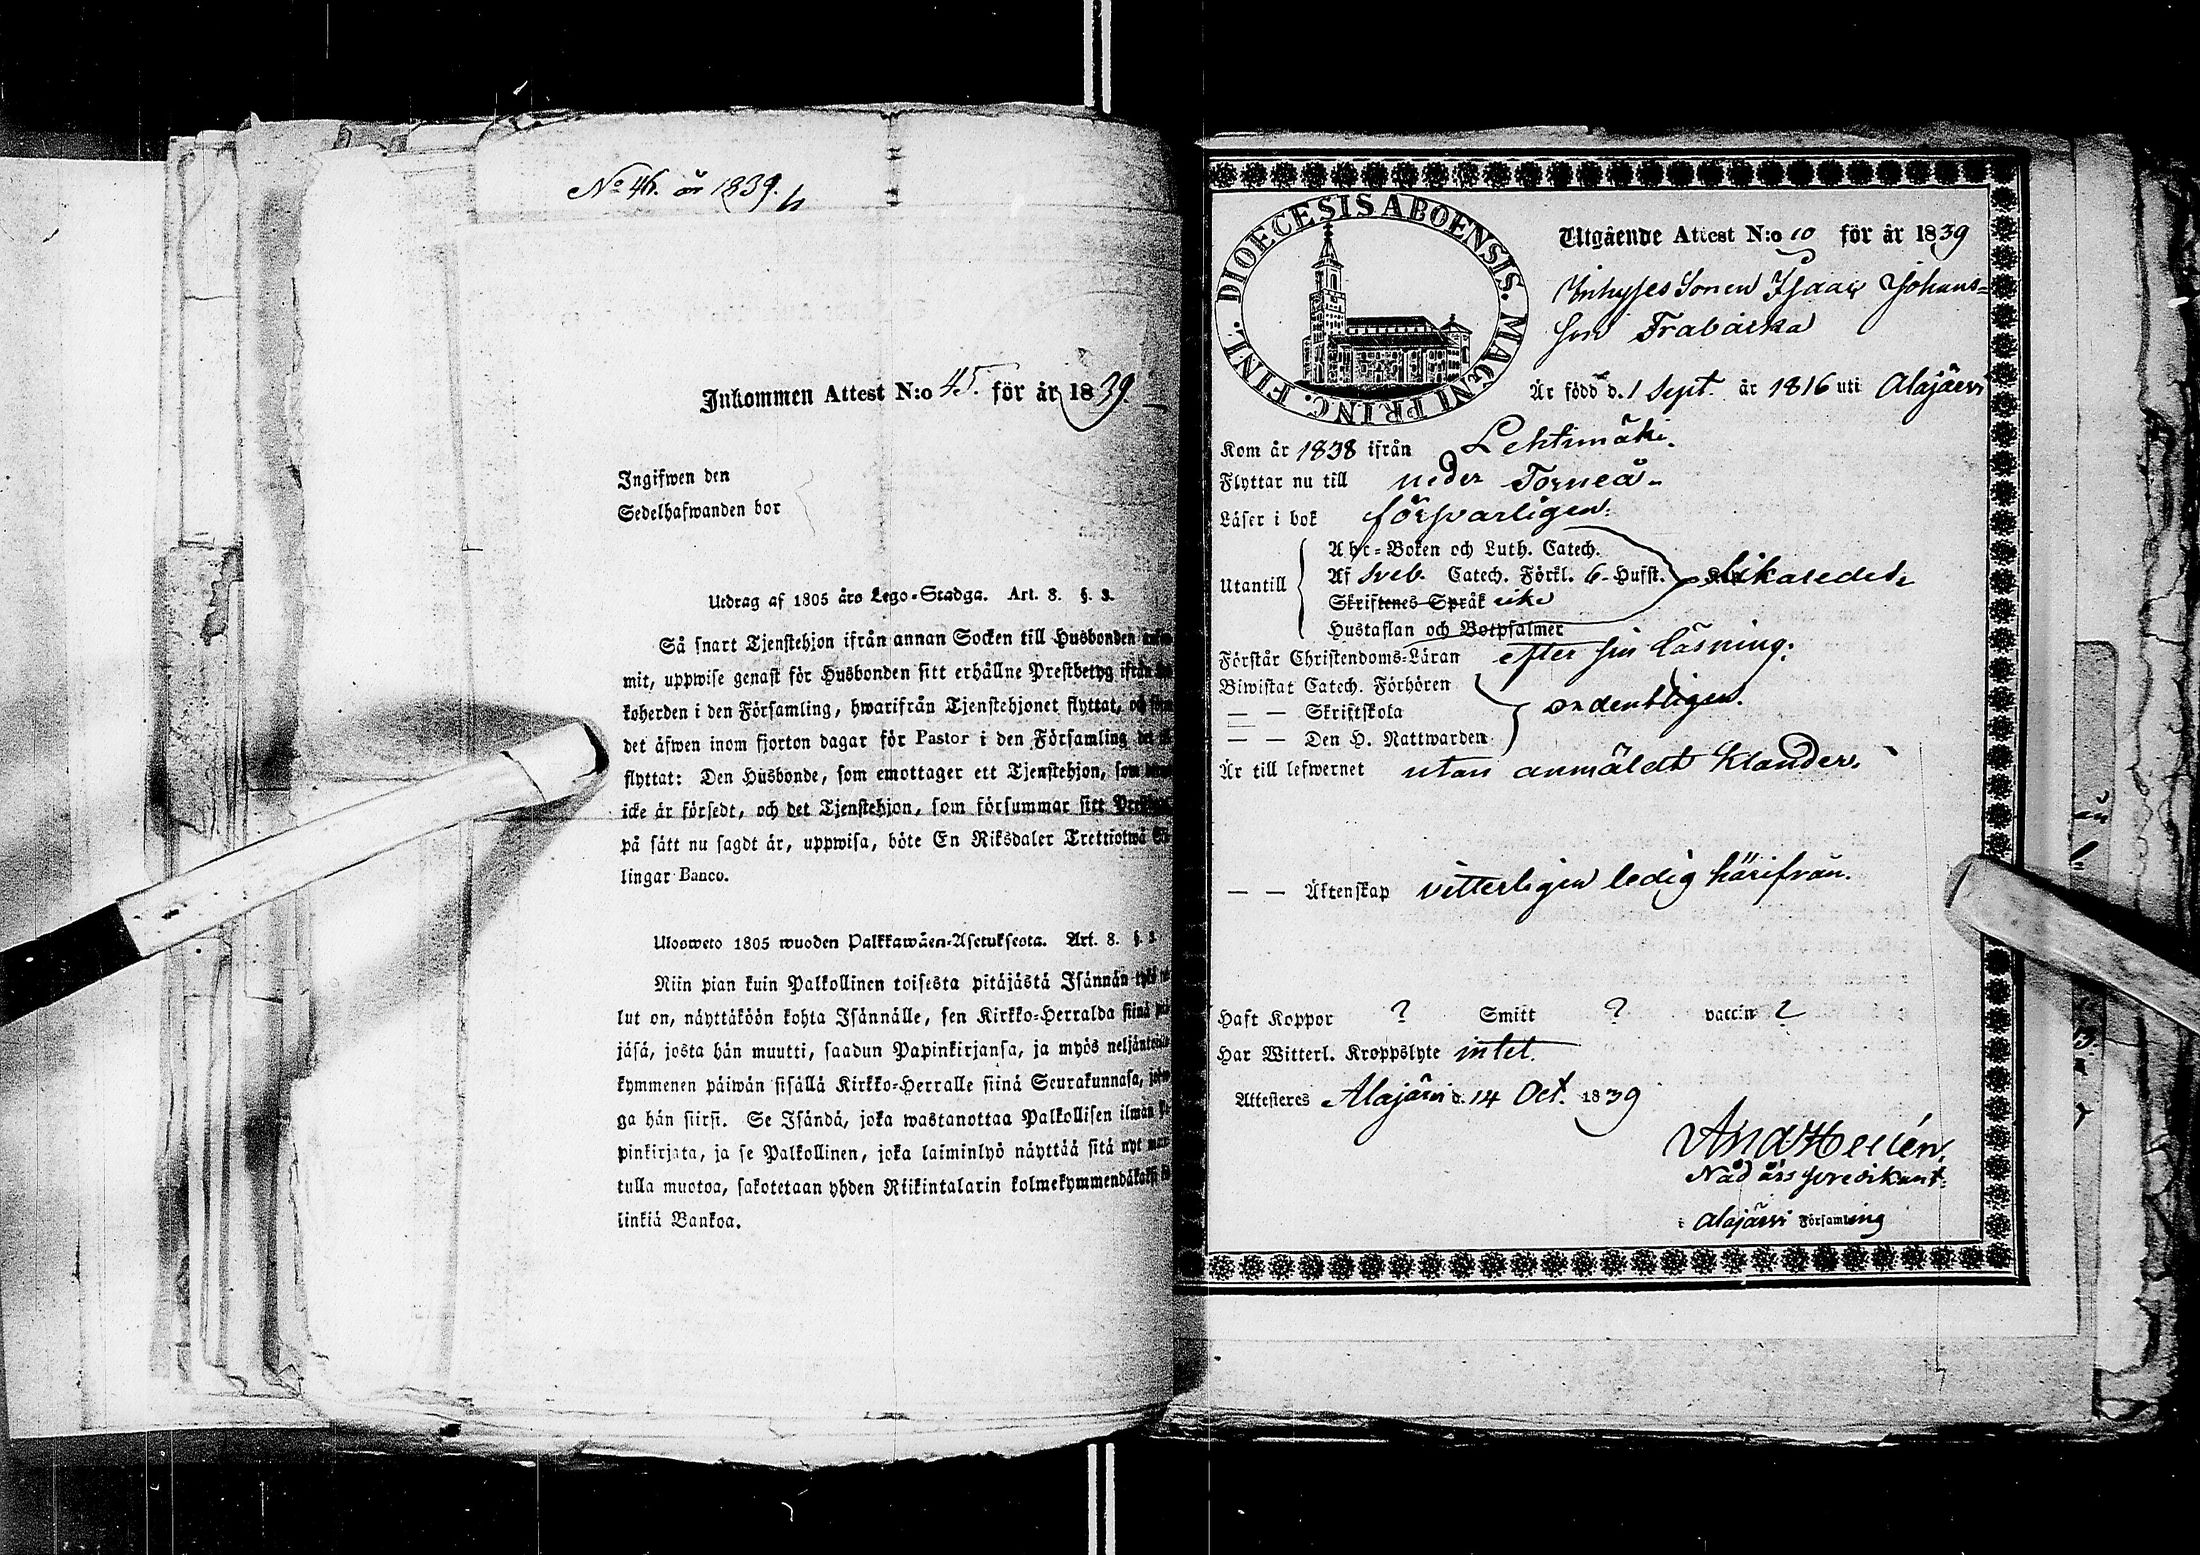 No 46. år 1839.
Inkommen Attest N:o 45. för år 1839.
Ingifwen den
Sedelhafwanden bor
Utdrag af 1805 års Lego-Stadga. Art. 8. §. 3.
Så snart Tjenstehjon ifrån annan Socken till Husbonden
mit, uppwise genast för Husbonden sitt erhållne Prestbetyg ifrån
koherden i den Församling, hwarifrån Tjenstehjonet flyttat, och
det äfwen inom fjorton dagar för Pastor i den Församling det
flyttat: Den Husbonde, som emottager ett Tjenstehjon, som
icke är försedt, och det Tjenstehjon, som försummar sitt
på sätt nu sagdt är, uppwisa, böte En Riksdaler Trettiotwå
lingar Banco.
Ulosweto 1805 wuoden Palkkawäen-Asetuksesta. Art. 8. §. 3.
Niin pian kuin Palkollinen toisesta pitäjästä Isännän
lut on, näyttäköön kohta Isännälle, sen Kirkko-Herralda siinä
jäsä, josta hän muutti, saadun Papinkirjansa, ja myös
kymmenen päiwän sisällä Kirkko-Herralle siinä Seurakunnasa,
ga hän siirsi. Se Isändä, joka wastanottaa Palkollisen ilman
pinkirjata, ja se Palkollinen, joka laiminlyö näyttää sitä nyt
tulla muotoa, sakotetaan yhden Riikintalarin
linkiä Bankoa.
DIOECESIS ABOENSIS. MAGNI PRINC. FINL.
Utgående Attest N:o 10 för år 1839
Inhyses Sonen Isaac Johans=
son Trabacka
Är född d. 1 Sept. år 1816 uti Alajärvi
Kom år 1838 ifrån Lehtimäki.
Flyttar nu till neder Torneå
Läser i bok försvarligen.
Abc-Boken och Luth. Catech.
Utantill Af Sveb. Catech. Förkl. 6 Hufst. likaledes
Skriftenes Språk
Hustaflan och Botpsalmer
Förstår Christendoms-Läran efter sin läsning.
Biwistat Catech. Förhören
— — Skriftskola ordentligen.
— — Den H. Nattwarden
Är till lefwernet utan anmäldt klander.
— — Äktenskap vitterligen ledig härifrån.
Haft Koppor ? Smitt ? vaccin ?
Har Witterl. Kroppslyte intet.
Attesteres Alajärvi d. 14 Oct. 1839
Nådårs predikant
i Alajärvi Församling